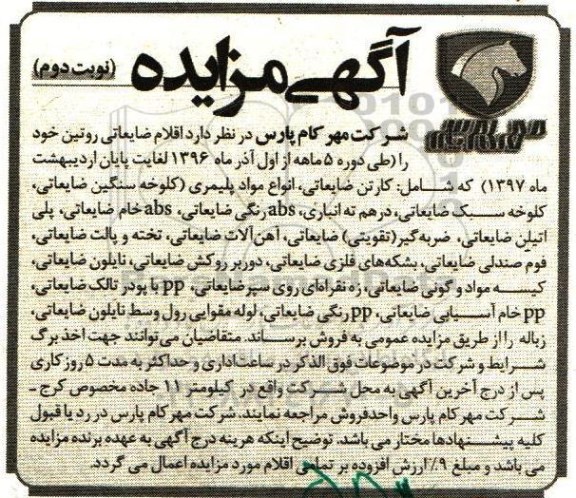 آگهی مزایده (نوبت دوم)
شرکت مهر کام پارس در نظر دارد اقلام ضایعاتی روتین خود
را (طی دوره ۵ ماهه از اول آذر ماه ۱۳۹۶ لغایت پایان اردیبهشت
ماه ۱۳۹۷) که شامل: کارتن ضایعاتی، انواع مواد پلیمری (کلوخه سنگین ضایعاتی،
کلوخه سبک ضایعاتی، درهم ته انباری، abs رنگی ضایعاتی، abs خام ضایعاتی، پلی
اتیلن ضایعاتی، ضربه گیر(تقویتی) ضایعاتی، آهن آلات ضایعاتی، تخته و پالت ضایعاتی،
فوم صندلی ضایعاتی، بشکه‌های فلزی ضایعاتی، دوربر روکش ضایعاتی، نایلون ضایعاتی،
کیسه مواد و گونی ضایعاتی، زه نقره‌ای روی سپر ضایعاتی، pp با پودر تالک ضایعاتی،
pp خام آسیابی ضایعاتی، pp رنگی ضایعاتی، لوله مقوایی رول وسط نایلون ضایعاتی،
زباله را از طریق مزایده عمومی به فروش برساند. متقاضیان می‌توانند جهت اخذ برگ
شرایط و شرکت در موضوعات فوق الذکر در ساعت اداری و حداکثر به مدت ۵ روز کاری
پس از درج آخرین آگهی به محل شرکت واقع در کیلومتر ۱۱ جاده مخصوص کرج -
شرکت مهر کام پارس واحد فروش مراجعه نمایند. شرکت مهر کام پارس در رد یا قبول
کلیه پیشنهادها مختار می باشد. توضیح اینکه هزینه درج آگهی به عهده برنده مزایده
می باشد و مبلغ ۹٪ ارزش افزوده بر تمامی اقلام مورد مزایده اعمال می گردد.